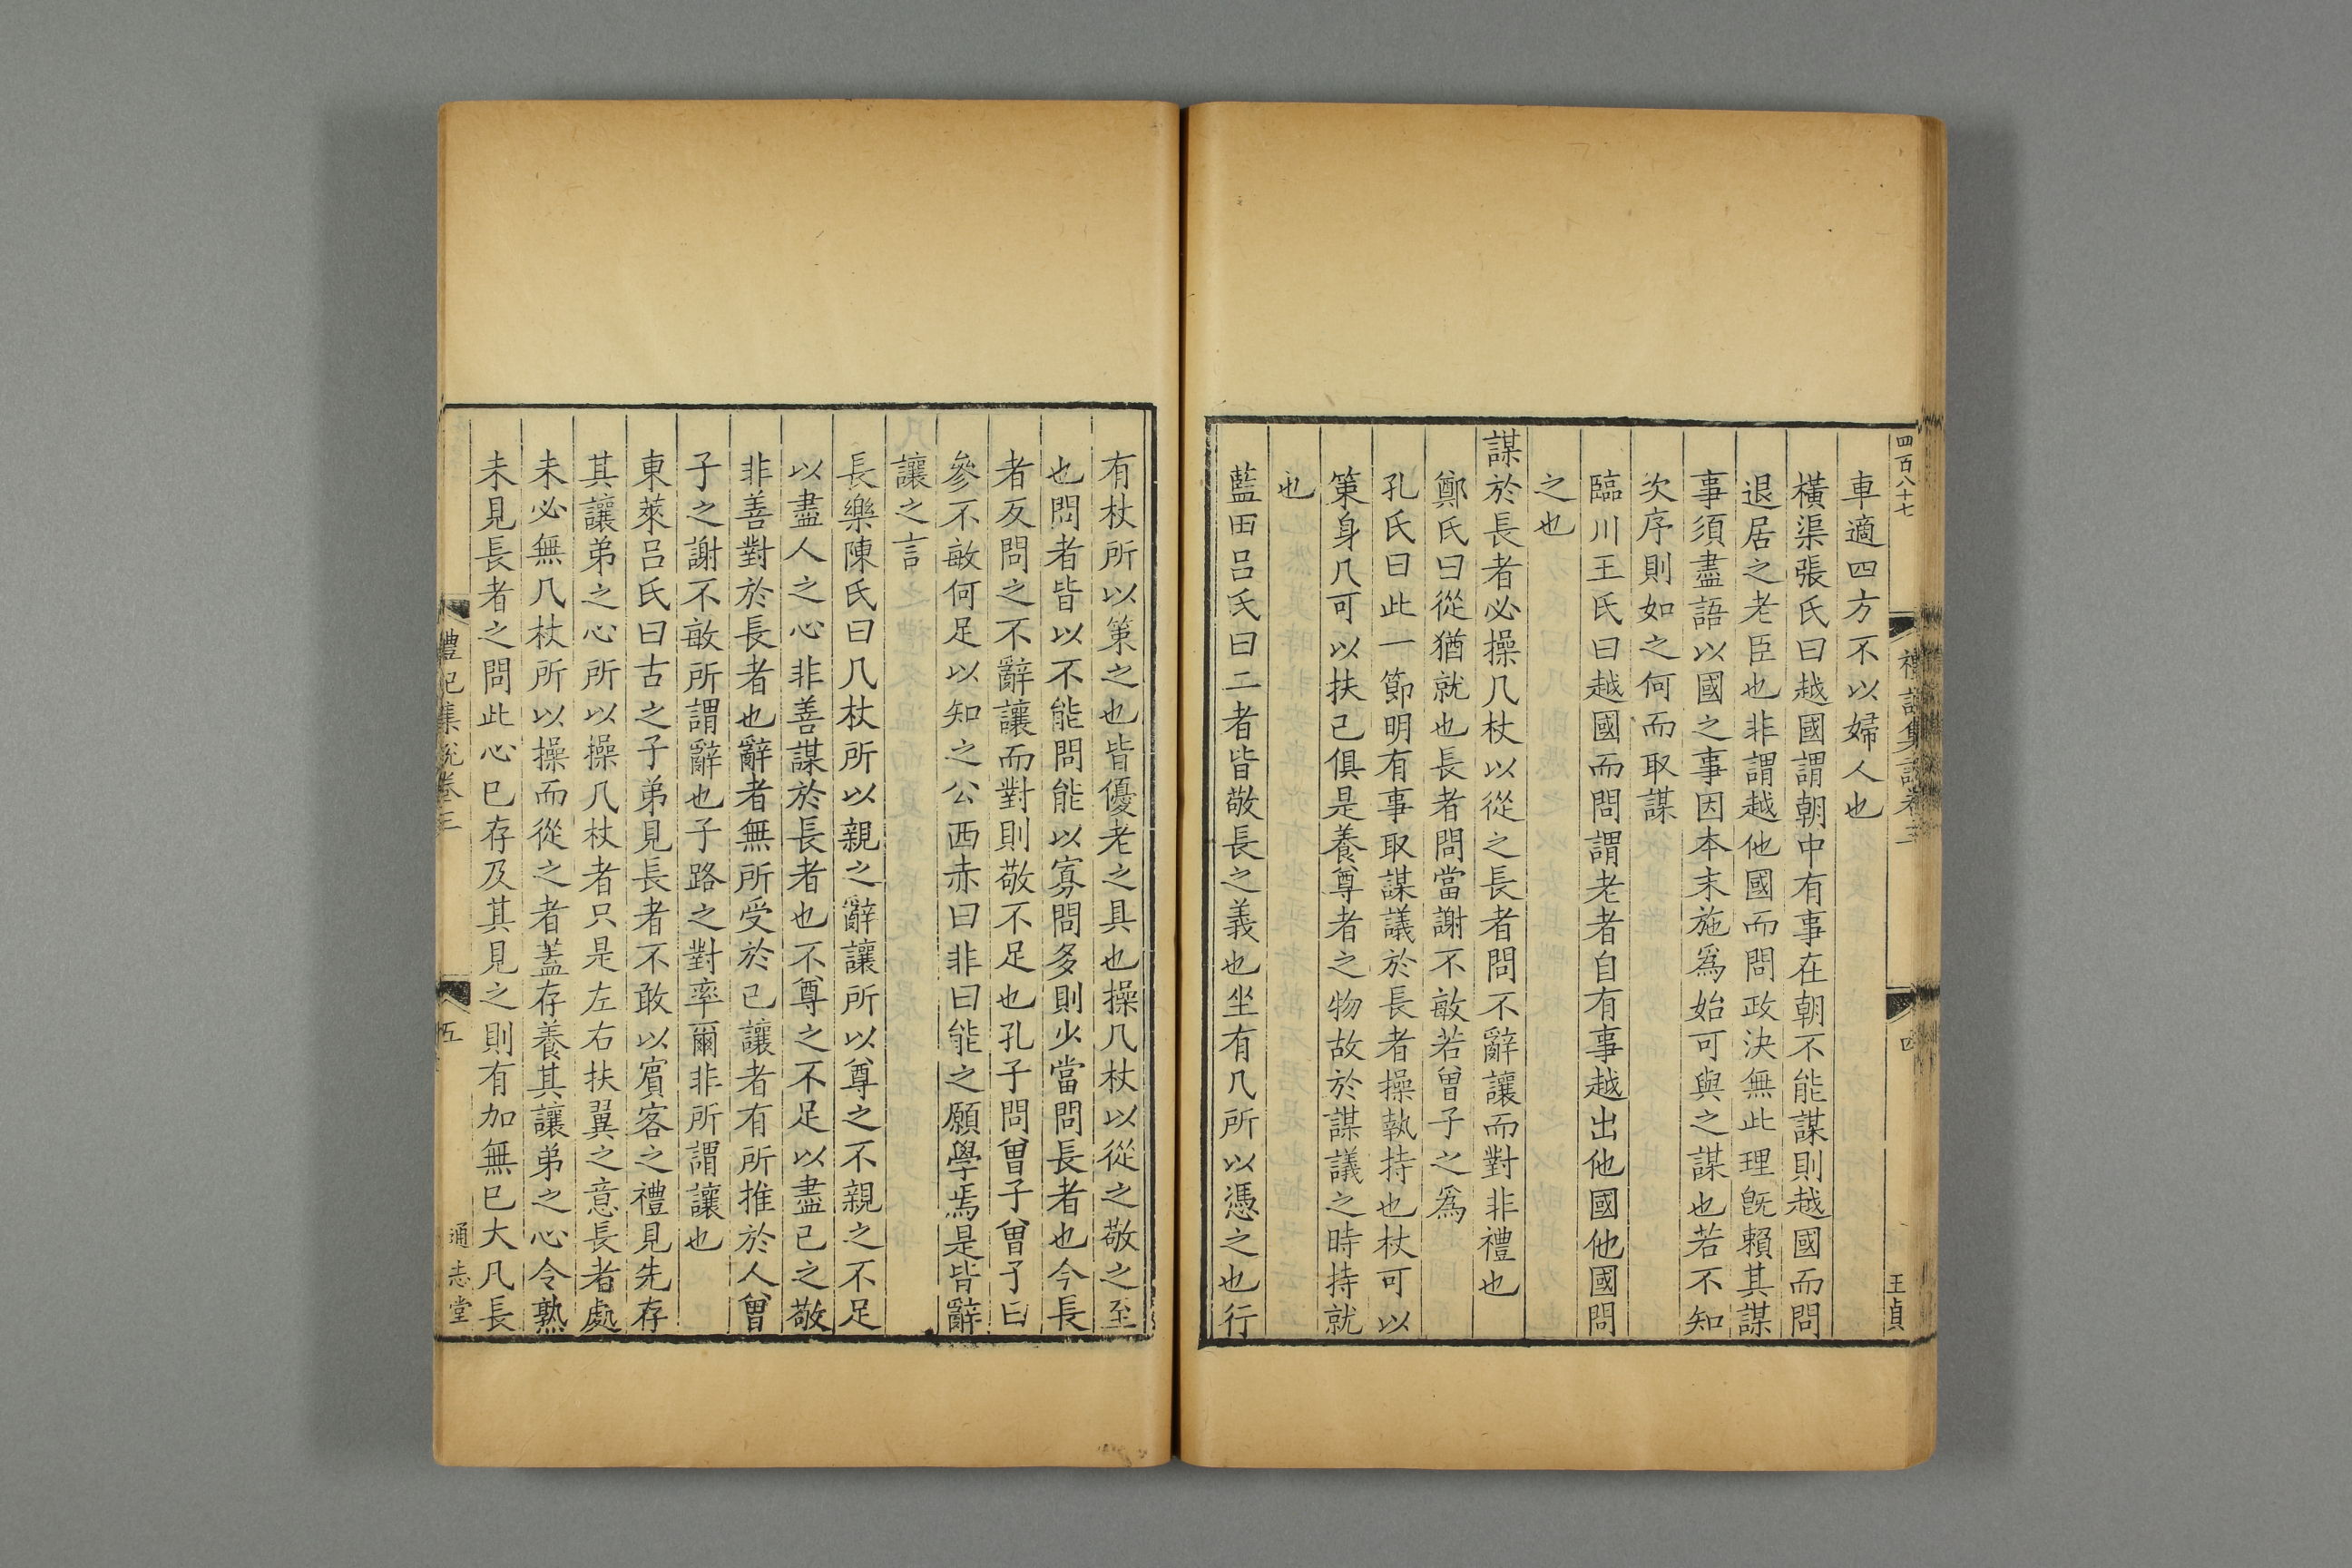 四百八十七
王貞
車適四方不以婦人也
橫渠張氏曰越國謂朝中有事在朝不能謀則越國而問
退居之老臣也非謂越他國而問政決無此理旣賴其謀
事須盡語以國之事因本末施爲始可與之謀也若不知
次序則如之何而取謀
臨川王氏曰越國而問謂老者自有事越出他國他國問
之也
謀於長者必操几杖以從之長者問不辭讓而對非禮也
鄭氏曰從猶就也長者問當謝不敏若曾子之爲
孔氏曰此一節明有事取謀議於長者操執持也杖可以
策身几可以扶己俱是養尊者之物故於謀議之時持就
也
藍田呂氏曰二者皆敬長之義也坐有几所以憑之也行
有杖所以策之也皆優老之具也操几杖以從之敬之至
也問者皆以不能問能以寡問多則少當問長者也今長
者反問之不辭讓而對則敬不足也孔子問曾子曾子曰
參不敏何足以知之公西赤曰非曰能之願學焉是皆辭
讓之言
長樂陳氏曰几杖所以親之辭讓所以尊之不親之不足
以盡人之心非善謀於長者也不尊之不足以盡己之敬
非善對於長者也辭者無所受於己讓者有所推於人曾
子之謝不敢所謂辭也子路之對率爾非所謂讓也
東萊呂氏曰古之子弟見長者不敢以賓客之禮見先存
其讓弟之心所以操几杖者只是左右扶翼之意長者處
未必無几杖所以操而從之者蓋存養其讓弟之心令熟
未見長者之問此心已存及其見之則有加無已大凡長
禮記集說卷三
五
通志堂